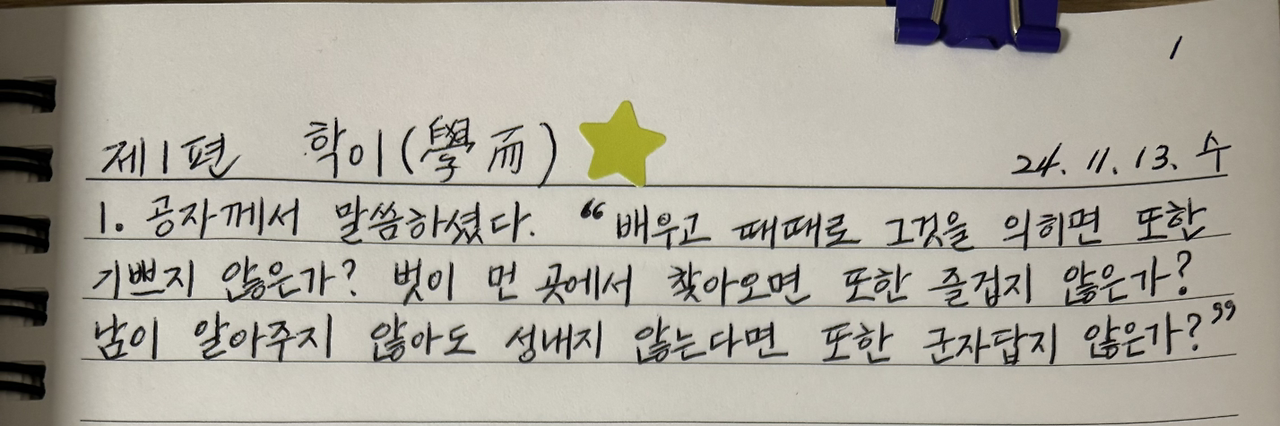 1
제1편 학이(學而) 24. 11. 13. 수
1. 공자께서 말씀하셨다. “배우고 때때로 그것을 익히면 또한
기쁘지 않은가? 벗이 먼 곳에서 찾아오면 또한 즐겁지 않은가?
남이 알아주지 않아도 성내지 않는다면 또한 군자답지 않은가?”